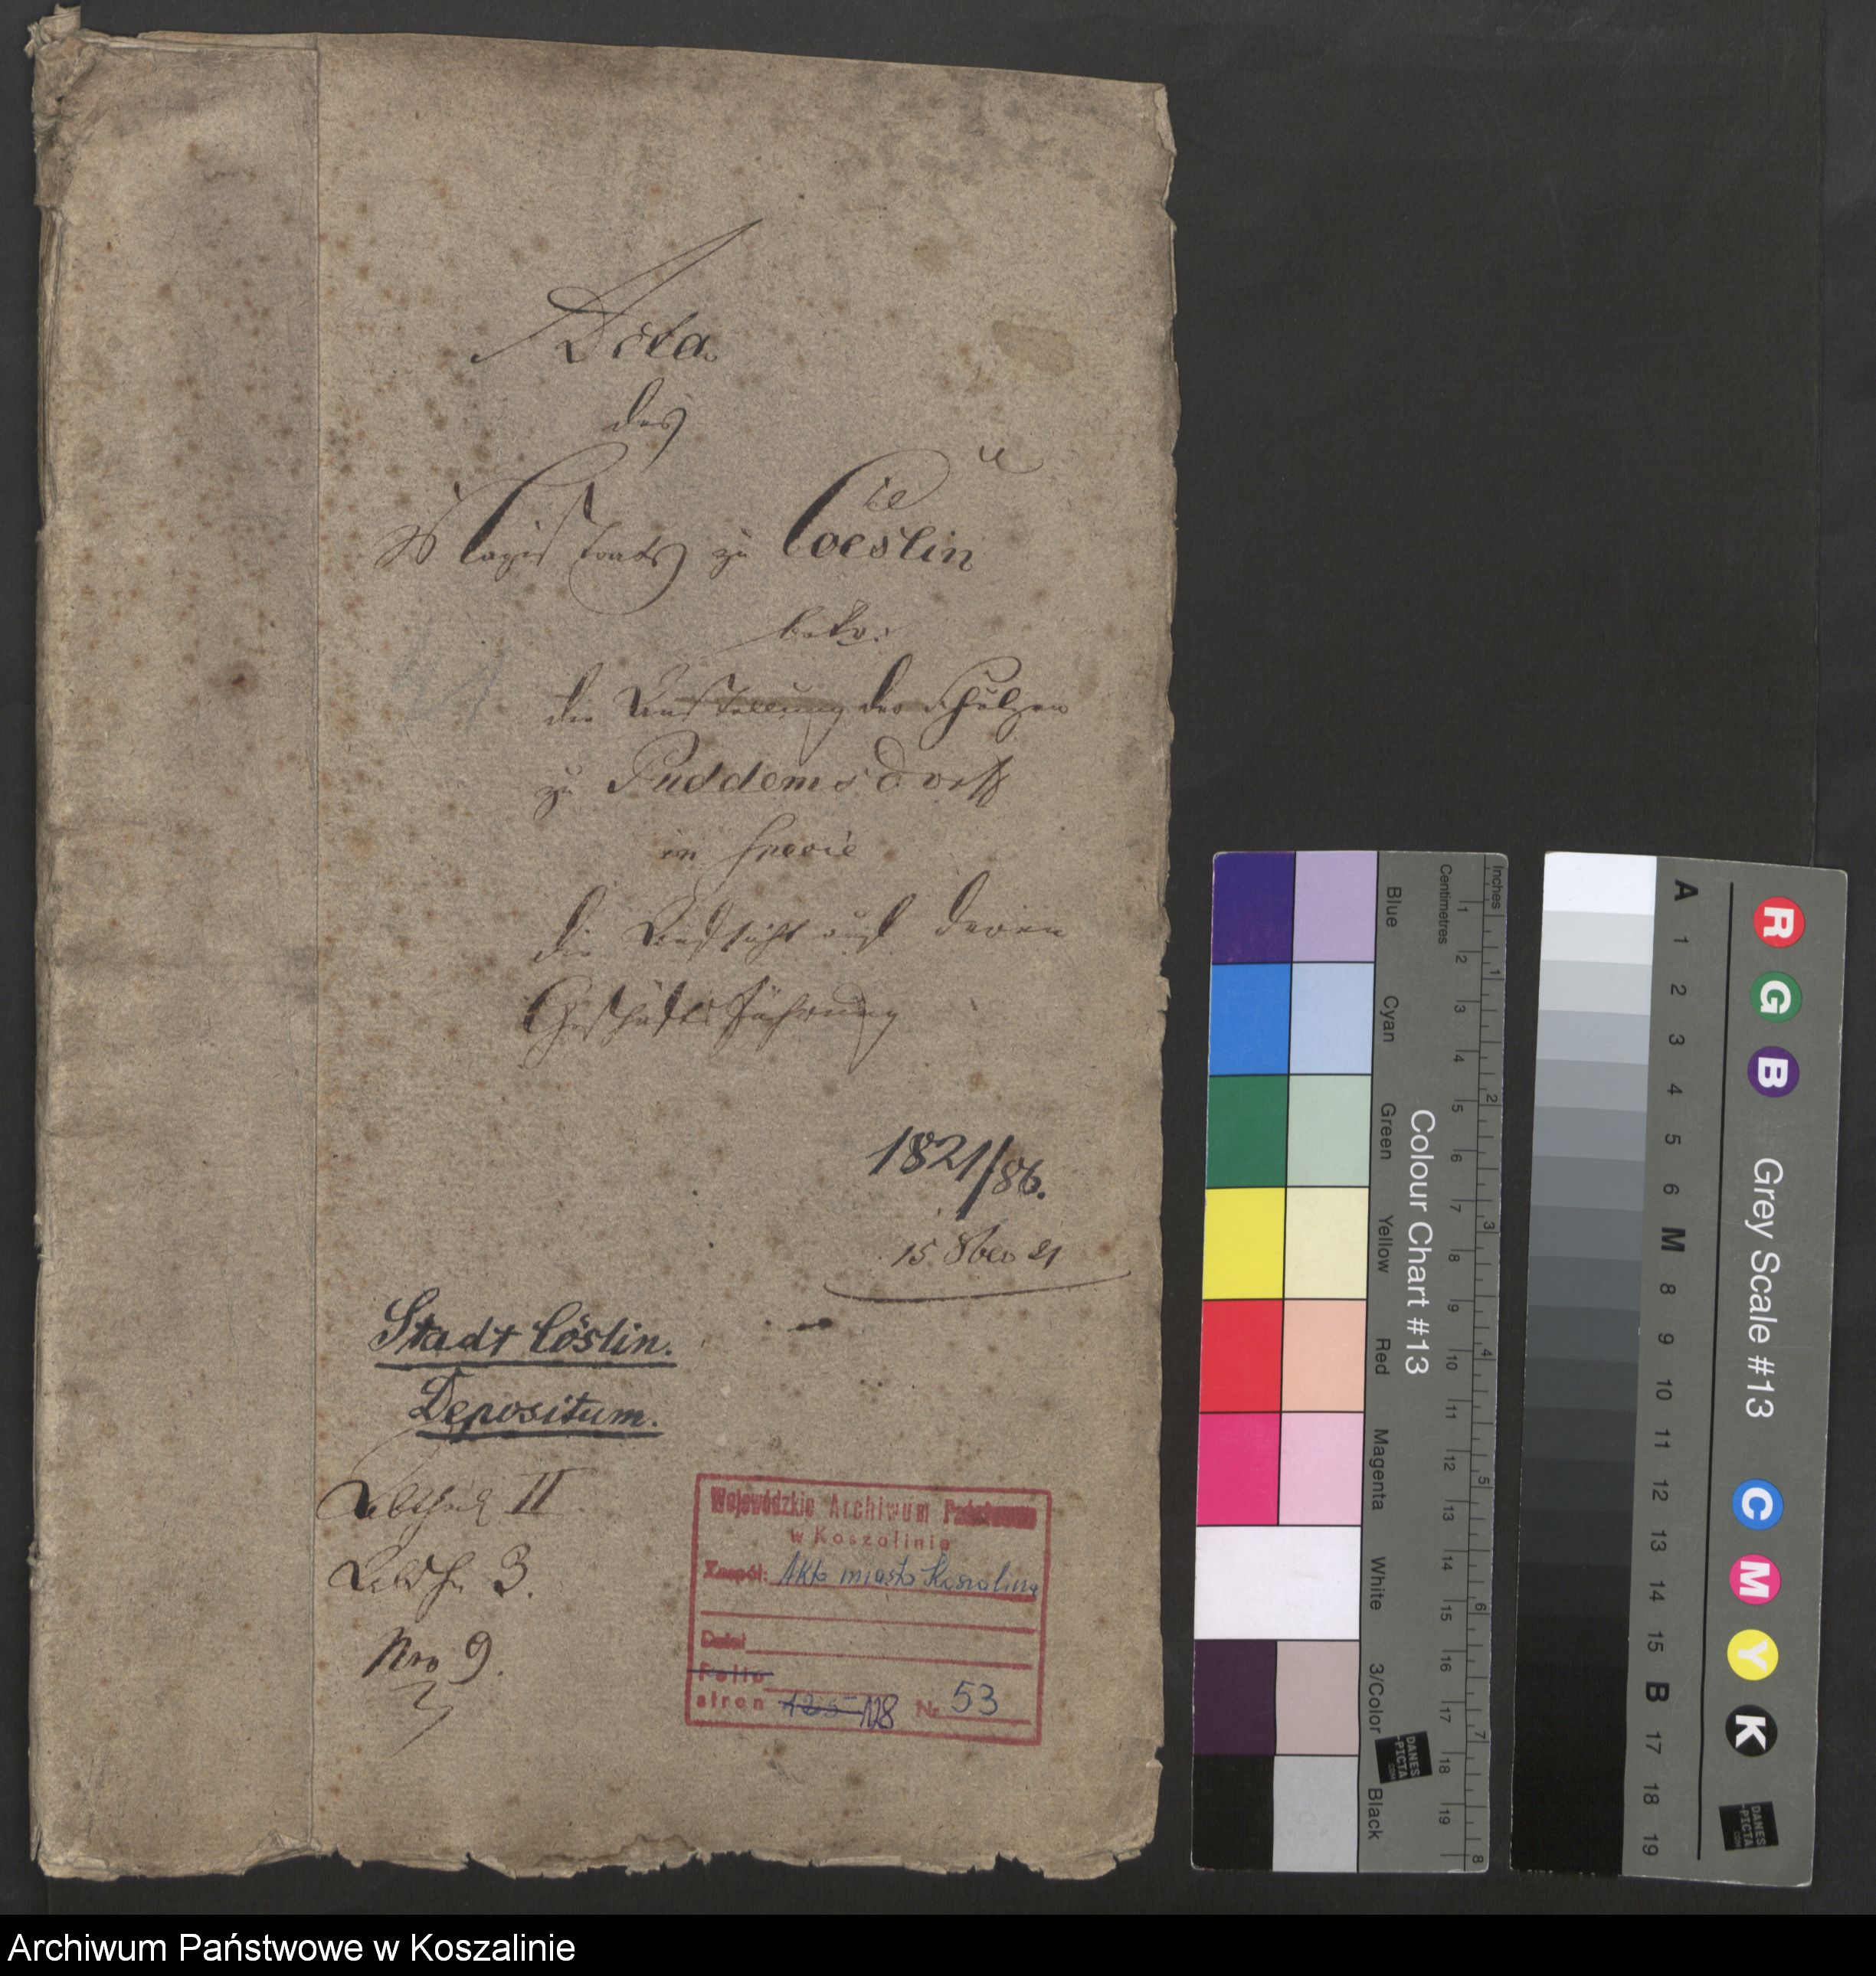 Acta
des
Magistrats zu Coeslin
betr:
die Anstellung der Schulzen
zu Puddemsdorff
in specie
die Aufsicht auf deren
Geschäfts Führung
1821/86.
15 8ber 21
Stadt Cöslin.
Depositum.
II
3.
Nro 9.
Wojewódzkie Archiwum Państwowe
w Koszalinie
Zespół: Akta miasta Koszalina
Dział
Folio
stron 125 118 Nr 53
Inches
Centimetres
1 2 3 4 5 6 7 8 9 10 11 12 13 14 15 16 17 18 19
1 2 3 4 5 6 7 8
Colour Chart #13
Blue
Cyan
Green
Yellow
Red
Magenta
White
3/Color
Black
DANES
-PICTA
.COM
A 1 2 3 4 5 6 M 8 9 10 11 12 13 14 15 B 17 18 19
R G B
Grey Scale #13
C M Y K
DANES
-PICTA
.COM
Archiwum Państwowe w Koszalinie